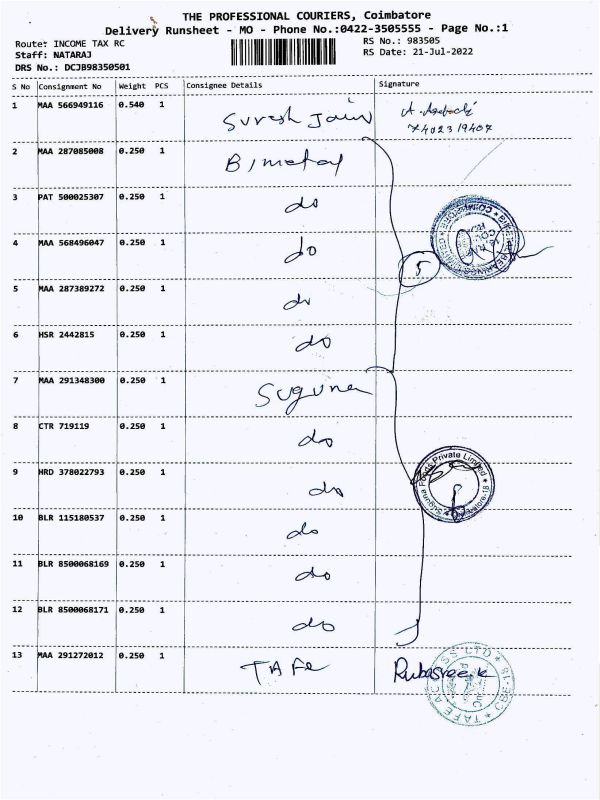 THE PROFESSIONAL COURIERS, Coimbatore
Delivery Runsheet - MO - Phone No.:0422-3505555 - Page No.:1
Route: INCOME TAX RC
RS No.: 983505
Staff: NATARAJ
RS Date: 21-Jul-2022
DRS No.: DCJB98350501
S No Consignment No Weight PCS Consignee Details Signature
1 MAA 566949116 0.540 1 Suresh Jain
7402319407
2 MAA 287085008 0.250 1 Bimetal
3 PAT 500025307 0.250 1 do
4 MAA 568496047 0.250 1 do
5
5 MAA 287389272 0.250 1 do
6 HSR 2442815 0.250 1 do
7 MAA 291348300 0.250 1 Suguna
8 CTR 719119 0.250 1 do
Suguna Foods Private Limited
9 HRD 378022793 0.250 1 do
10 BLR 115180537 0.250 1 do
11 BLR 8500068169 0.250 1 do
12 BLR 8500068171 0.250 1 do
13 MAA 291272012 0.250 1 TAFe Rubasree.k